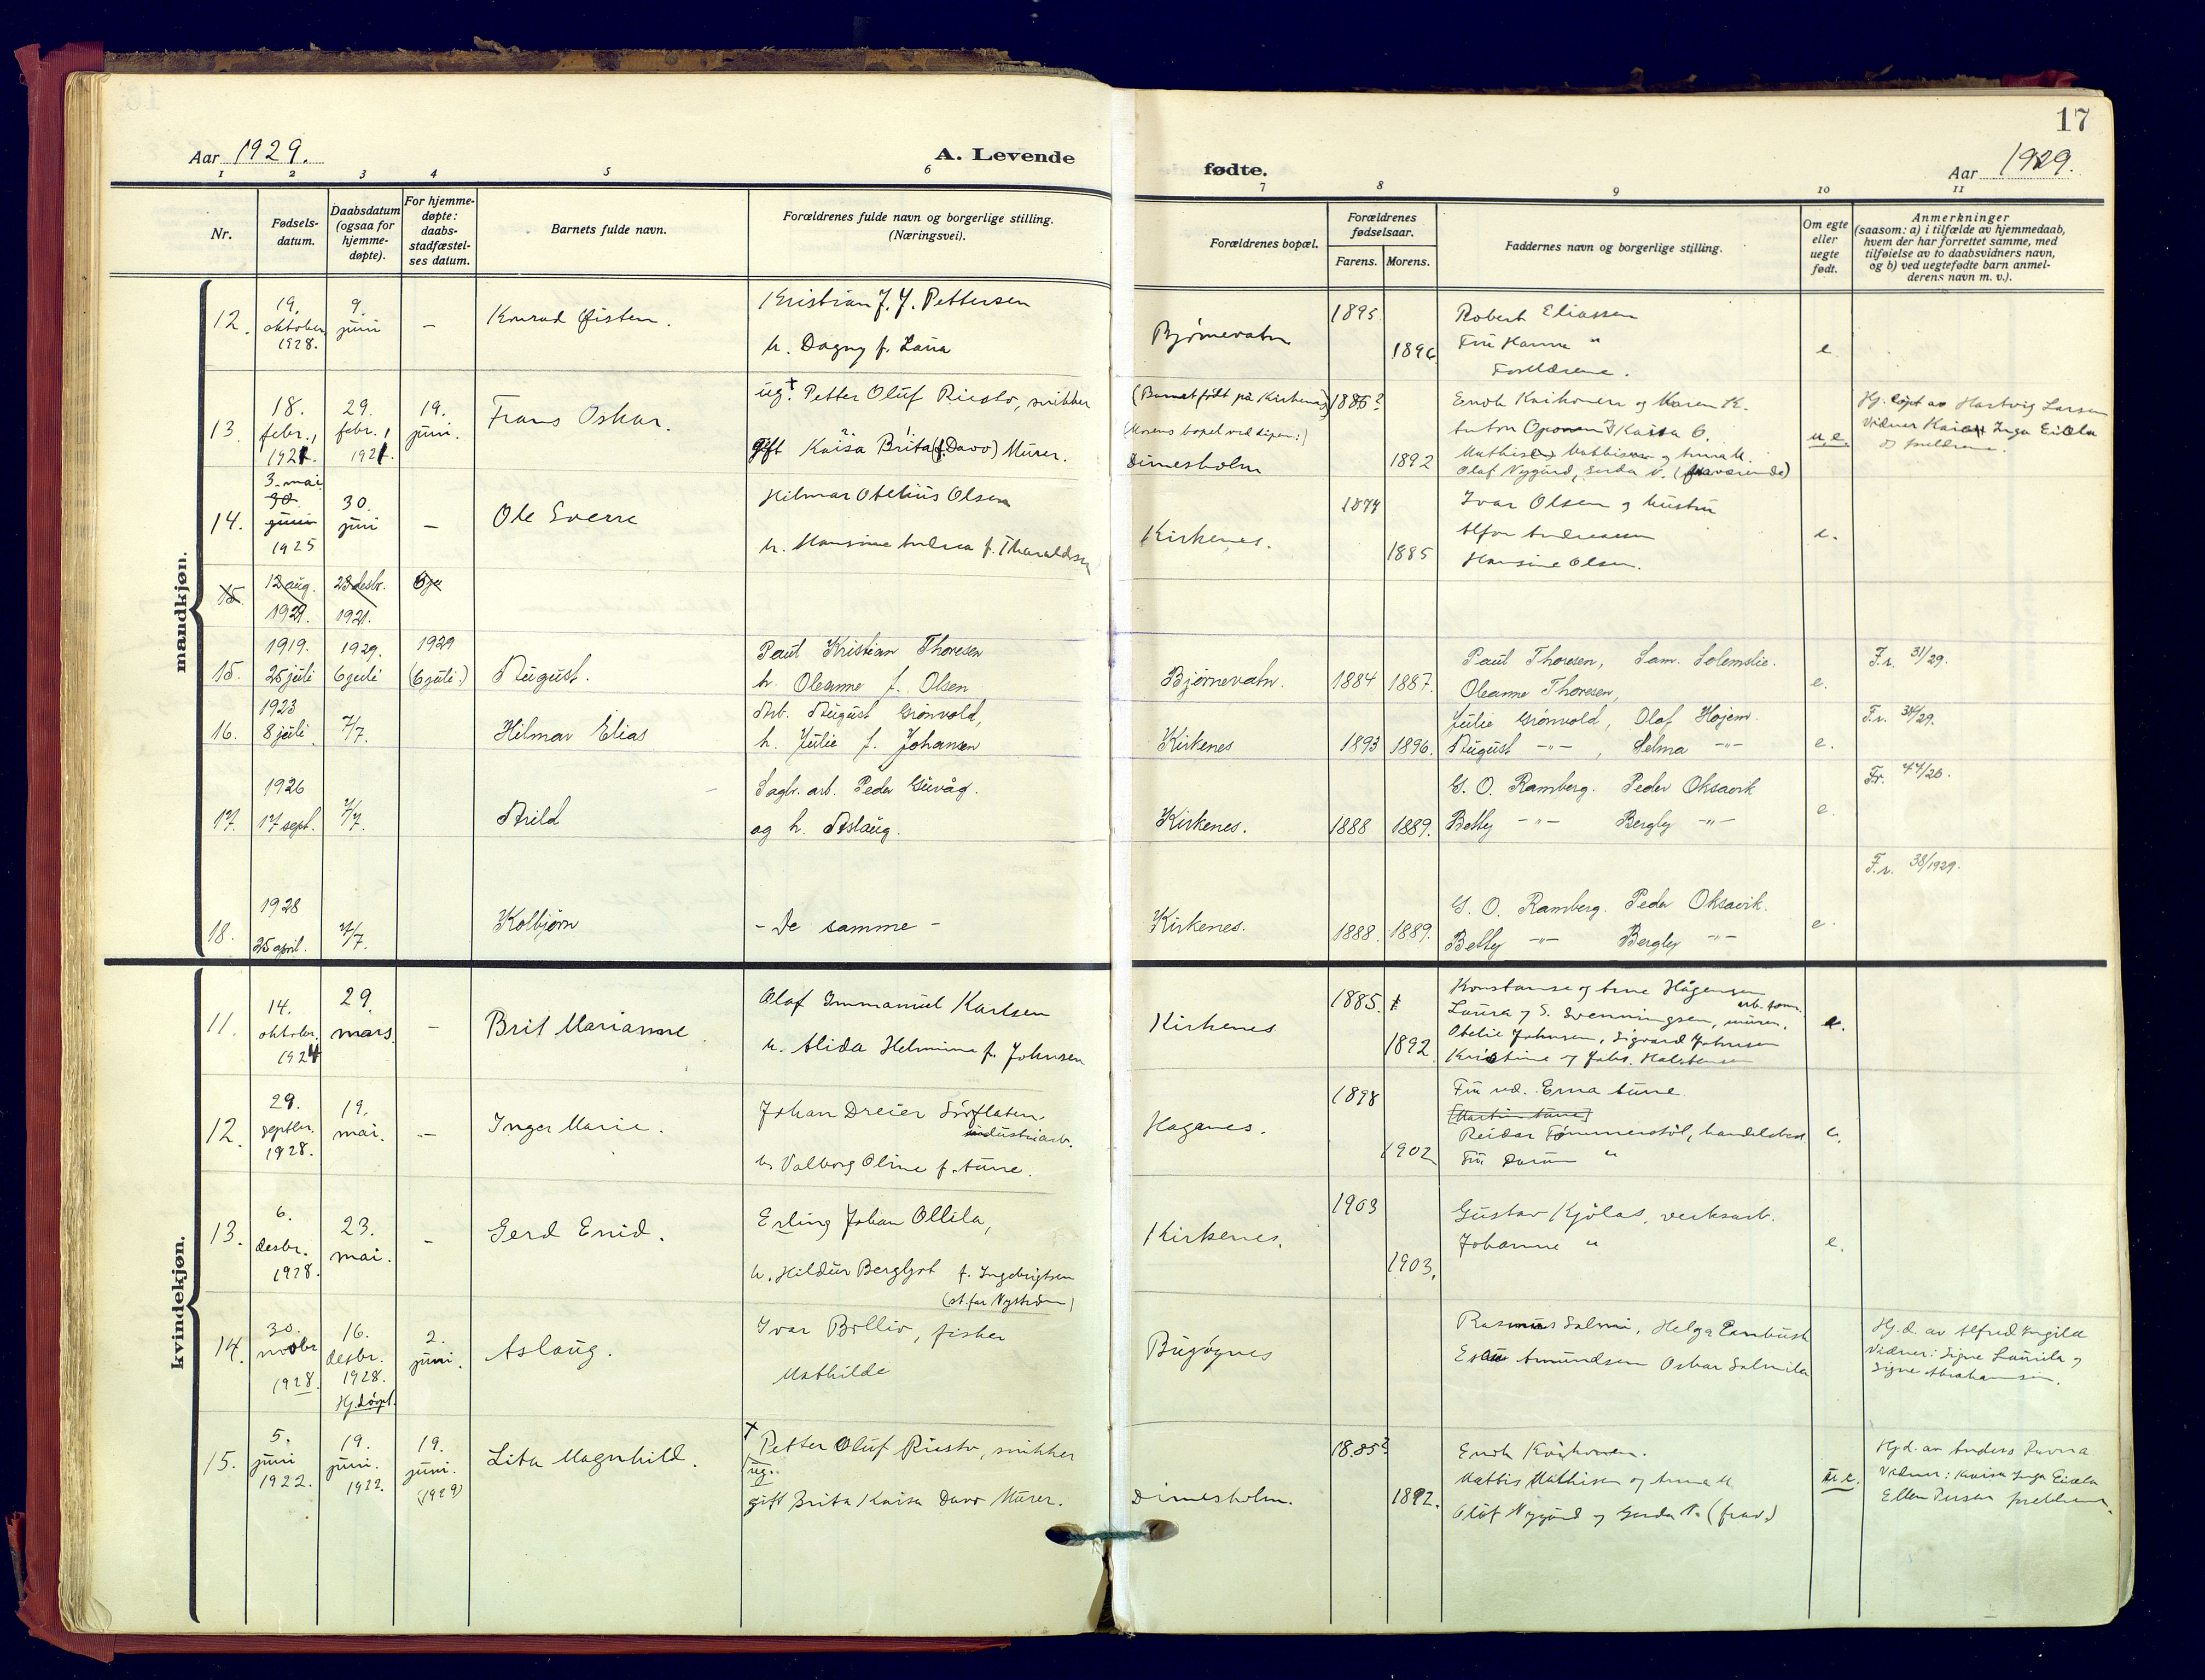 17
Aar 1929.
A. Levende
fødte.
Aar 1929.
1 2 3 4 5 6 7 8 9 10 11
Nr.
Fødsels-
datum.
Daabsdatum
(ogsaa for
hjemme-
døpte).
For hjemme-
døpte:
daabs-
stadfæstel-
ses datum.
Barnets fulde navn.
Forældrenes fulde navn og borgerlige stilling.
(Næringsvei).
Forældrenes bopæl.
Forældrenes
fødselsaar.
Farens. Morens.
Faddernes navn og borgerlige stilling.
Om egte
eller
uegte
født.
Anmerkninger
(saasom: a) i tilfælde av hjemmedaab,
hvem der har forrettet samme, med
tilføielse av to daabsvidners navn,
og b) ved uegtefødte barn anmel-
derens navn m. v.).
mandkjøn.
12.
19.
oktober
1928.
9.
juni
—
Konrad Øisten.
Kristian J. J. Pettersen
h. Dagny f.
Bjørnevatn
1895
1896
Robert Eliassen
Fru Hanna "
Forældrene.
e.
13.
18.
febr.,
1921.
29.
febr.,
1921.
19.
juni.
Frans Oskar.
ug. Petter Oluf Riesto, snikker
gift Kaisa Brita (f. Davo) Murer.
(Barnet født på Kirkenes)
Dimesholm
1886?
1892
Enok og Karen K.
Anton
Mathisen og Anna M.
Olaf Nygård, Gerda N. (fraværende)
u.e.
Hj. døpt av Hartvig Larsen
Vidner Inga Eidela
14.
3. mai
30
juni
1925
30.
juni
—
Ole Sverre
Hilmar Otelius Olsen
h. Hansine Andrea f. Tharaldsen
Kirkenes.
1877
1885
Ivar Olsen og hustru
Alfon Andreassen
Hansine Olsen.
e.
15.
12 aug.
1929.
28 desbr.
1921.
15.
1919.
25 juli
1929.
6 juli
1929
(6 juli.)
August.
Paul Kristian Thoresen
h. Oleanne f. Olsen
Bjørnevatn.
1884
1887.
Paul Thoresen, Sam. Solemslie.
Oleanne Thoresen,
e.
F.r. 31/29.
16.
1923
8 juli
7/7.
Hilmar Elias
Arb. August Grönvold,
h. Julie f. Johansen
Kirkenes
1893
1896.
Julie Grönvold, Olaf Hojem.
August —"— , Selma —"—
e.
F.r. /29.
17.
1926
17 sept.
7/7.
Arild
Sagbr. arb. Peder Guvåg.
og h. Aslaug.
Kirkenes.
1888
1889.
G. O. Ramberg. Peder Oksavik
Betty —"— Bergly —"—
e.
Fr. 44/26.
18.
1928
25 april.
7/7.
Kolbjørn
— De samme —
Kirkenes.
1888.
1889.
G. O. Ramberg. Peder Oksavik.
Betty —"— Bergly —"—
e.
F.r. 38/1929.
kvindekjøn.
11.
14.
oktober.
1924
29.
mars.
—
Brit Marianne.
Olaf Immanuel Karlsen
h. Alida Helmine f. Johnsen
Kirkenes
1885.
1892.
Konstanse og Arne Hågensen
Laura og S. Svenningsen, murer.
Otelie Johnsen, Sigvard Johnsen
Kristine og Johs. Halstensen
e.
12.
29.
septbr.
1928.
19.
mai.
—
Inger Marie.
Johan Dreier Sørflaten.
industriarb.
h. Valborg Oline f. Aune.
Haganes.
1898
1902
Fru Erna Aune
[Martin Aune]
Reidar Tømmerstøl, handelsbest.
Fru "
e.
13.
6.
desbr.
1928.
23.
mai.
—
Gerd Enid.
Erling Johan Ollila,
h. Hildur Bergljot f. Ingebrigtsen
(st.far Nystrøm)
Kirkenes.
1903
1903.
Gustav Kjölås, verksarb.
Johanne "
e.
14.
30.
novbr
1928.
16.
desbr.
1928.
Hj.døpt.
2.
juni.
Aslaug.
Ivar Bollio, fisker
Mathilde
Bugøynes
Rasmus Salmi, Helga
Esau Amundsen Oskar Salmila
Hj.d. av Alfred Ingila
Vidner: Signe Laurila og
Signe Abrahamsen.
15.
5.
juni
1922.
19.
juni.
1922.
19.
juni.
(1929)
Lita Magnhild.
Petter Oluf Riesto, snikker
ug.
gift Brita Kaisa Davo Murer.
Dimesholm.
1885?
1892.
Enok
Mattis Mathisen og Anna M
Olaf Nygård og Gerda N. (frav.)
u.e.
Hjd. av Anders
Vidner: Kaisa Inga Eidela
Ellen